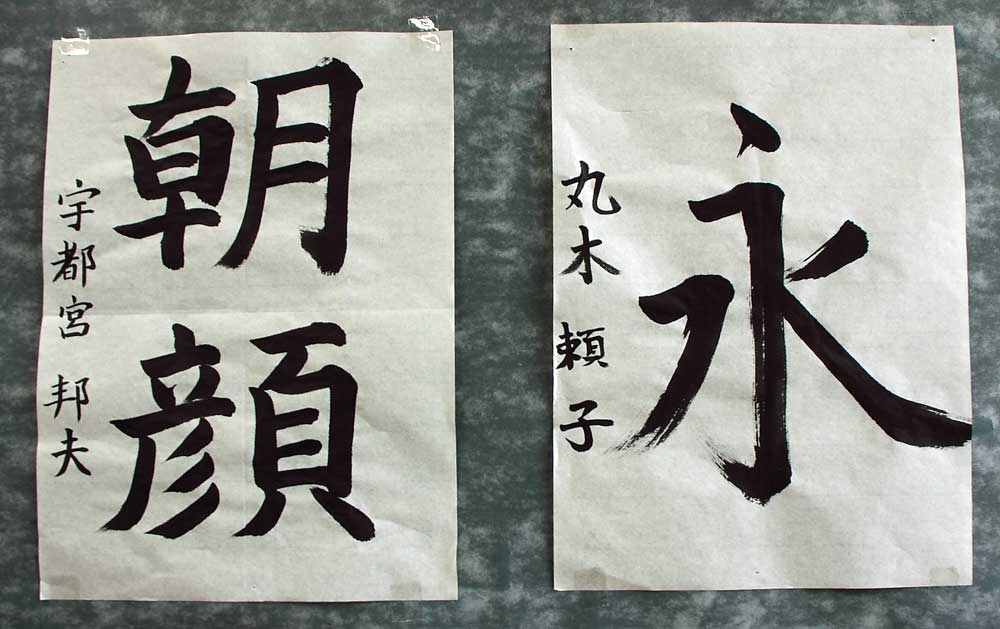 朝顔
宇都宮 邦夫
永
丸木 頼子